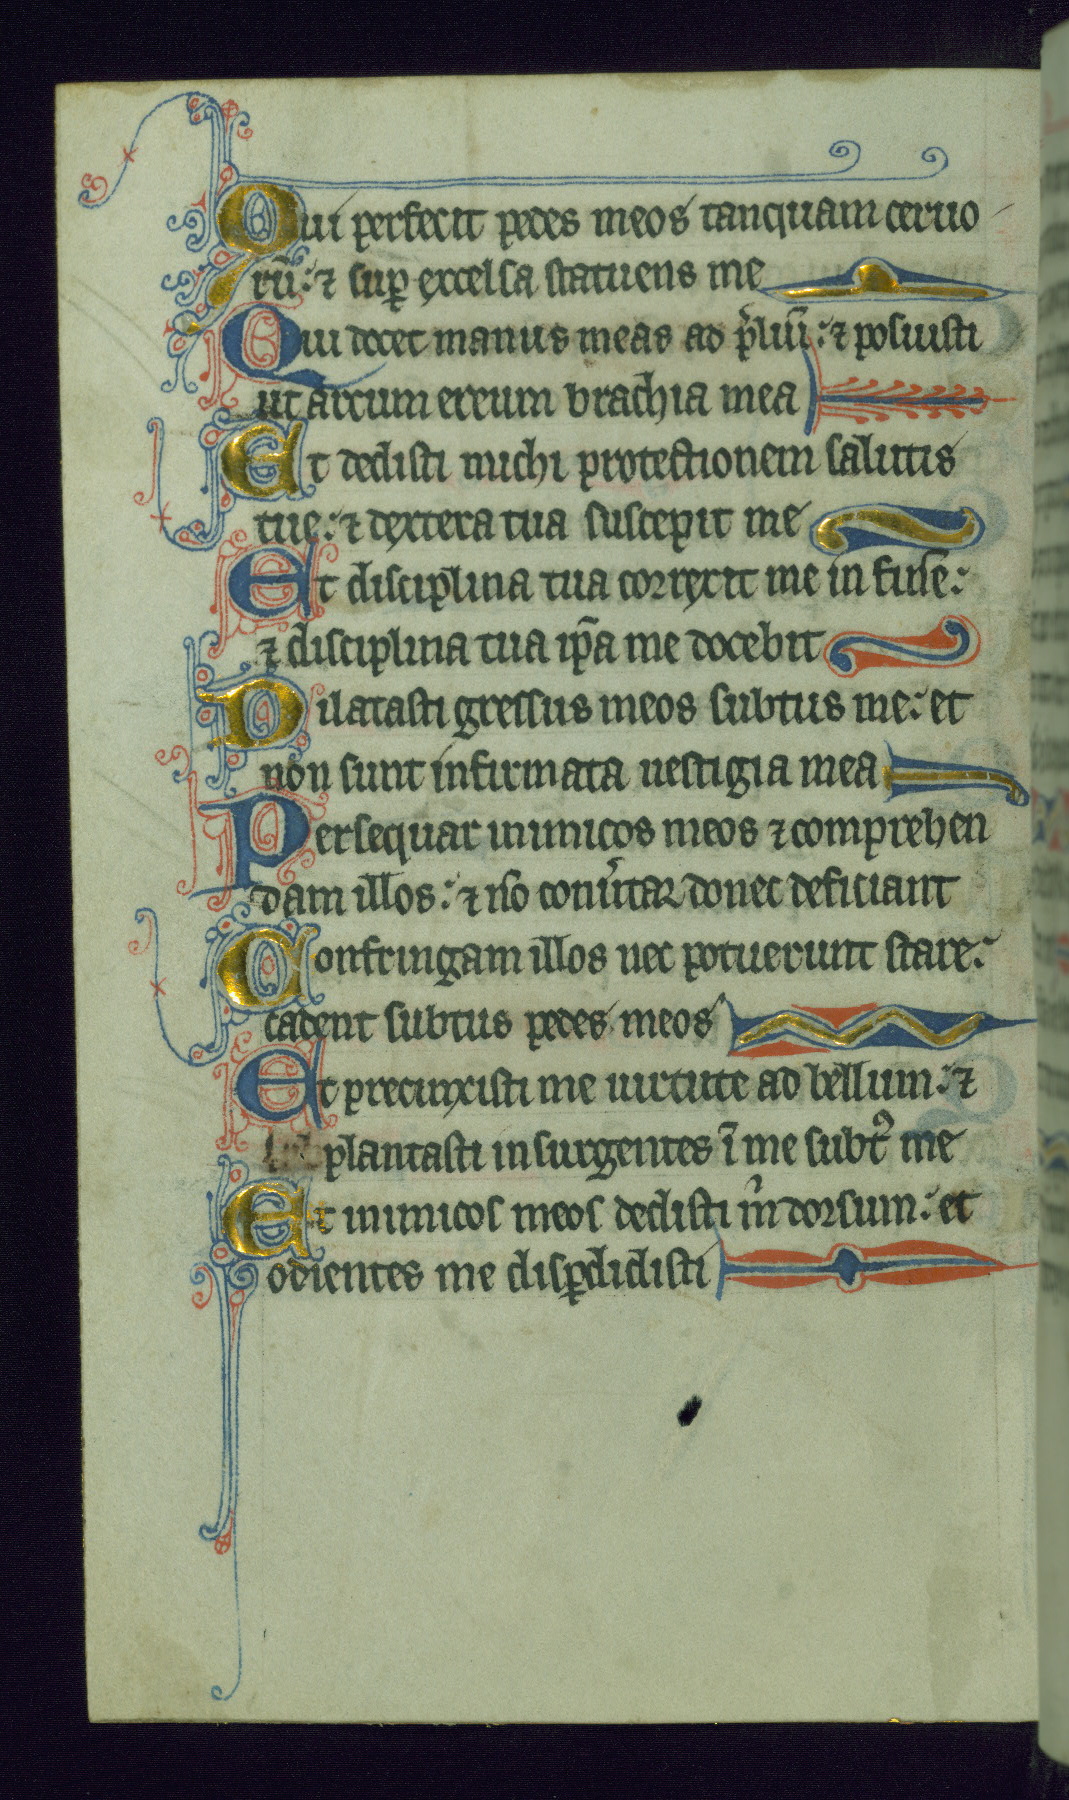 Qui perfecit pedes meos tanquam ceruo
rū: ⁊ suꝑ excelsa statuens me
Qui docet manus meas ad p̃liũ: ⁊ posuisti
ut arcum ereum brachia mea
Et dedisti michi protectionem salutis
tue: ⁊ dextera tua suscepit me
Et disciplina tua correxit me in fine:
⁊ disciplina tua ip̃a me docebit
Dilatasti gressus meos subtus me: et
non sunt infirmata uestigia mea
Persequar inimicos meos ⁊ comprehen
dam illos: ⁊ nō conũtar donec deficiant
Confringam illos nec potuerunt stare:
cadent subtus pedes meos
Et precinxisti me uirtute ad bellum: ⁊
plantasti insurgentes ī me subt᷒ me
Et inimicos meos dedisti m̃ dorsum: et
odientes me disꝑdidisti